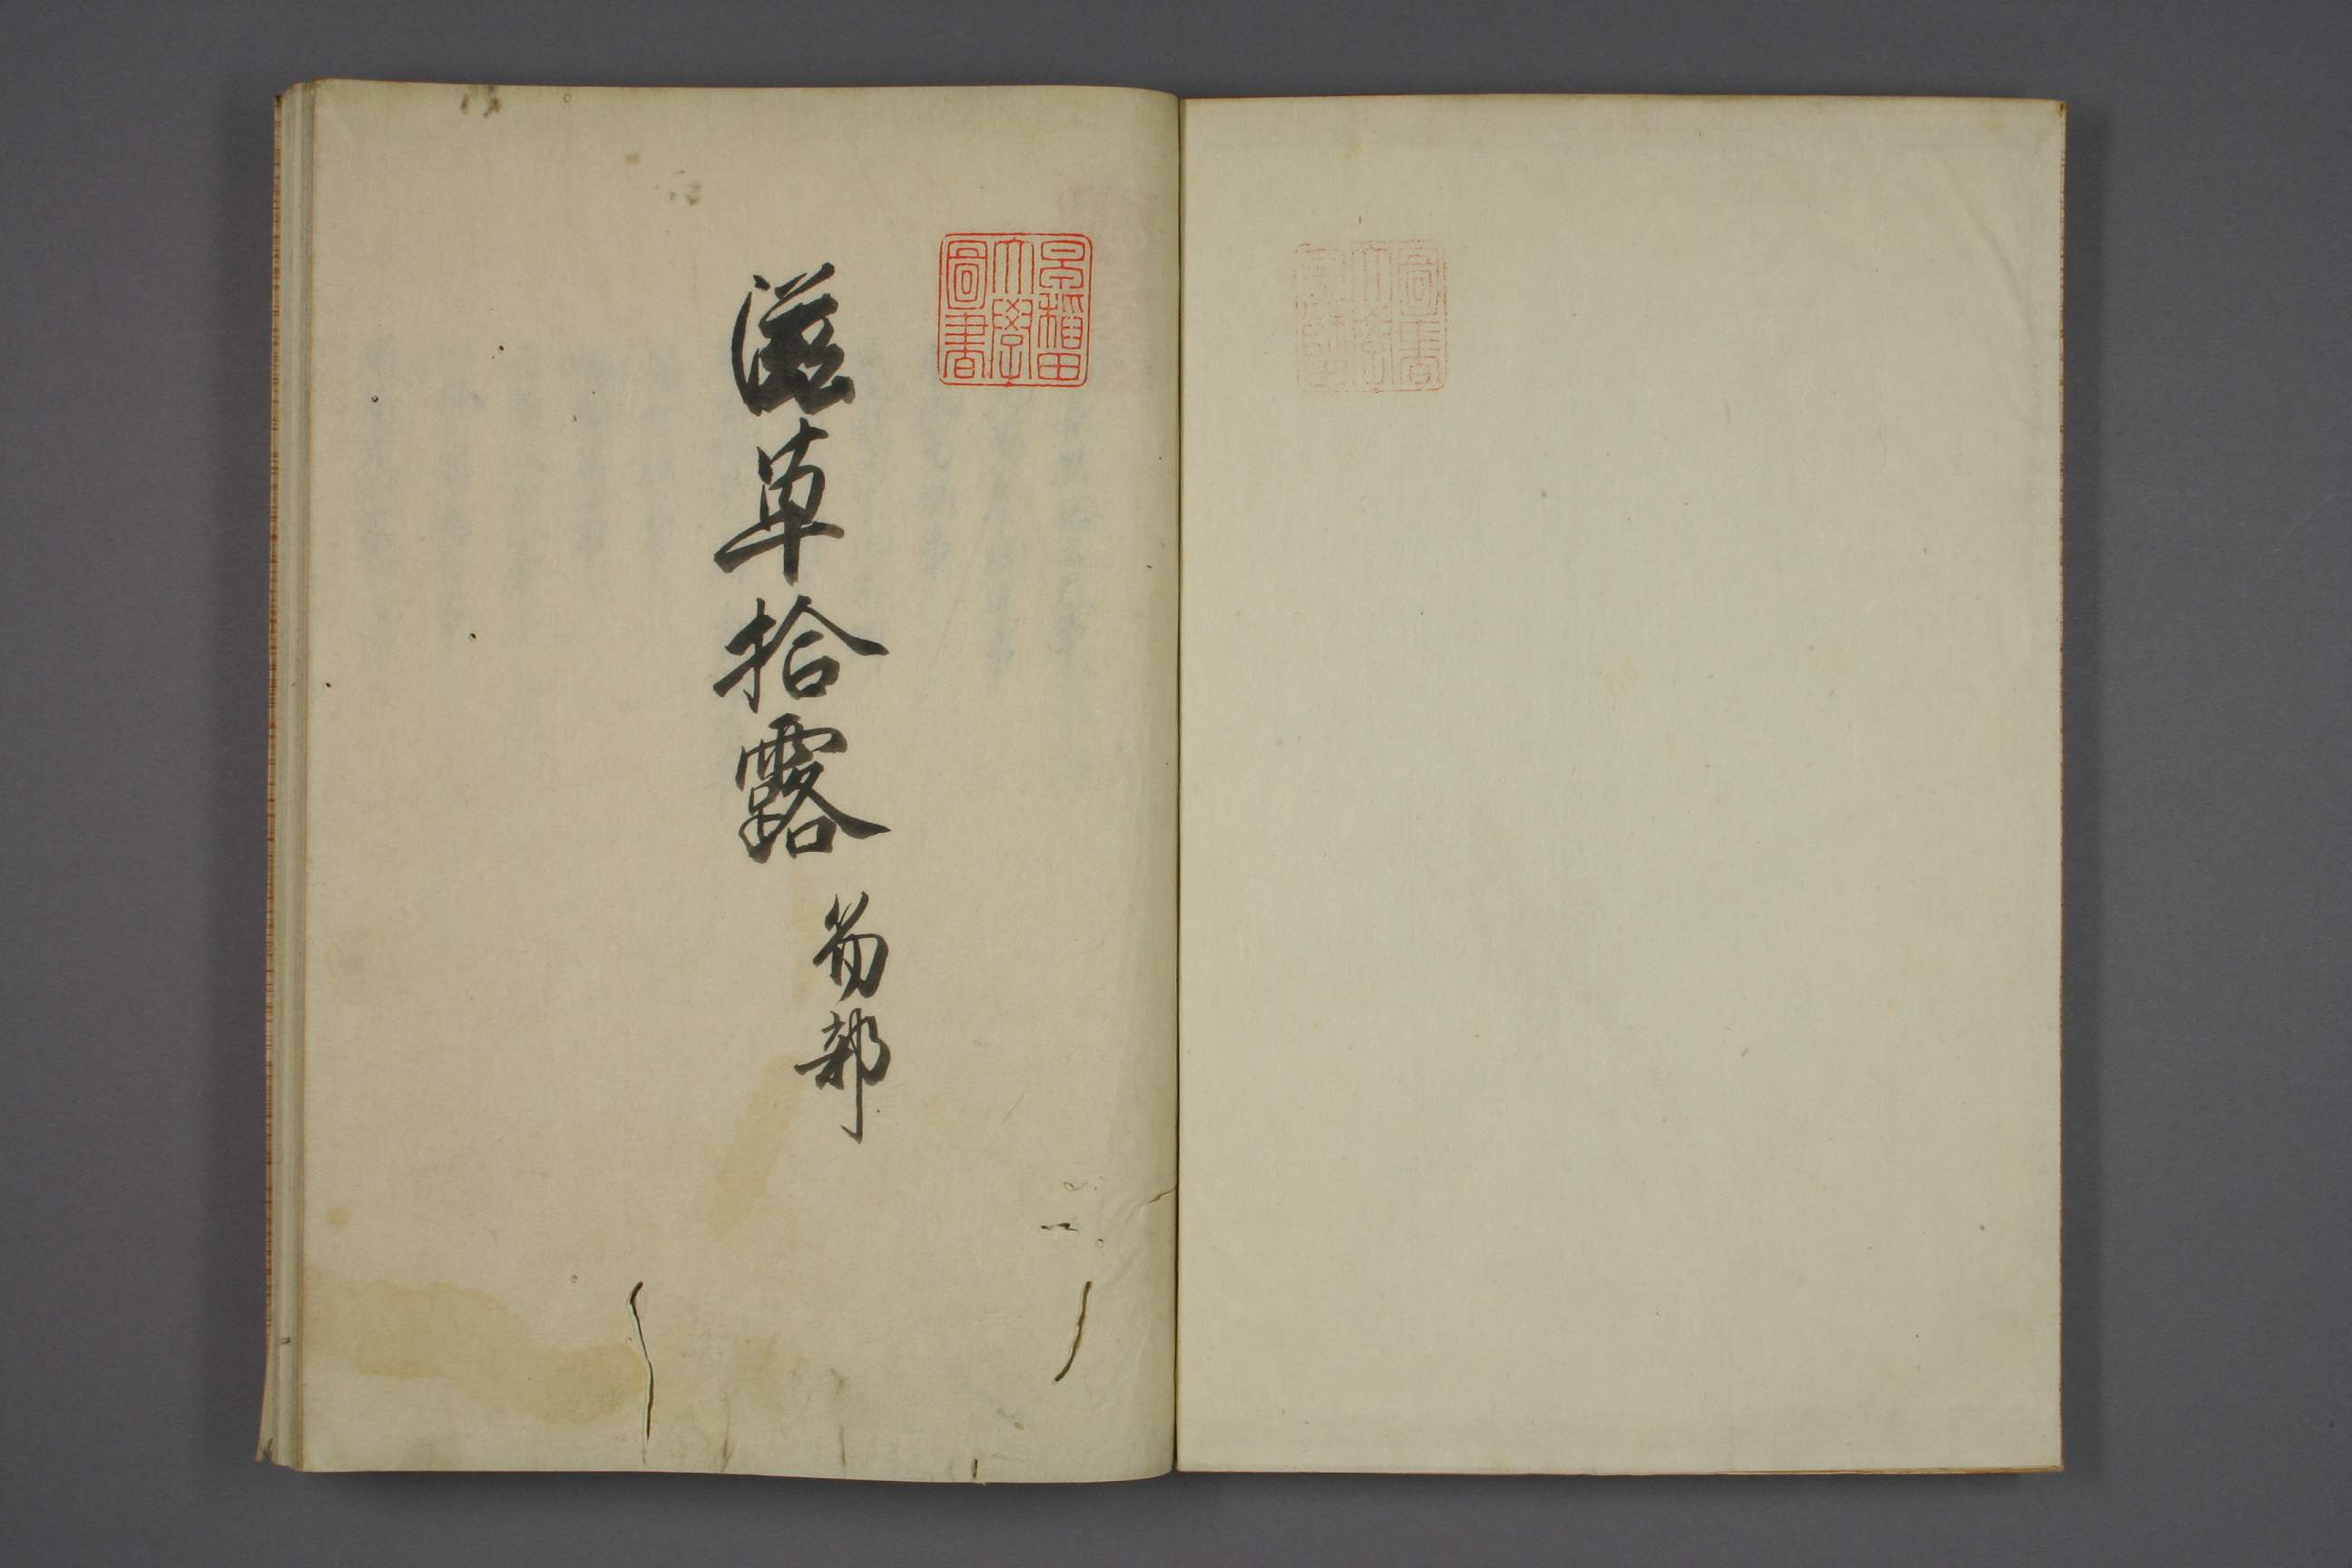 早稲田
大學
圖書
滋草拾露
笏部